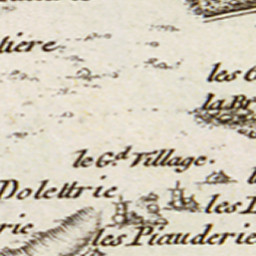 tiere
les
la Br
le G.d Tillage.
Dolettrie
les
rie
les Piauderie